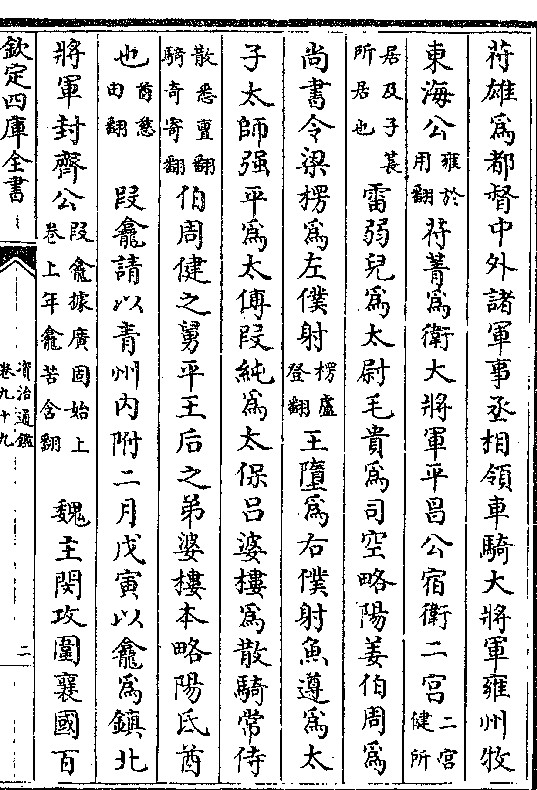 苻雄為都督中外諸軍事丞相領車騎大將軍雍州牧
東海公雍於用翻苻菁為衛大將軍平昌公宿衛二宫二宫健所
居及子萇所居也雷弱兒為太尉毛貴為司空略陽姜伯周為
尚書令梁楞為左僕射楞盧登翻王墮為右僕射魚遵為太
子太師强平為太傅段純為太保吕婆樓為散騎常侍
散悉亶翻騎奇寄翻伯周健之舅平王后之弟婆樓本略陽氐酋
也酋慈由翻段龕請以青州内附二月戊寅以龕為鎮北
將軍封齊公段龕據廣固始上卷上年龕苦含翻魏主閔攻圍襄國百
欽定四庫全書
資治通鑑
卷九十九
二